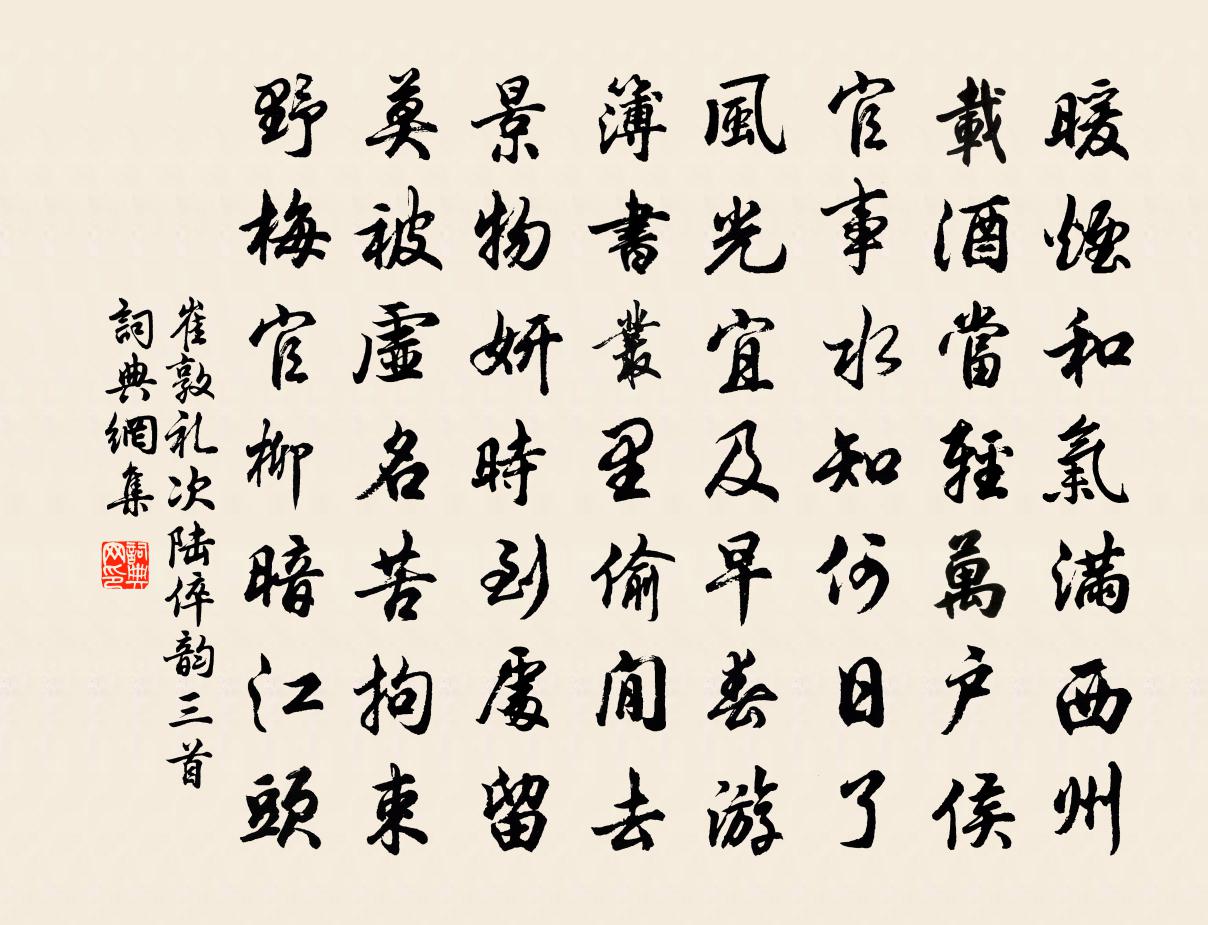 暖煙和氣滿西州
載酒當輕萬户侯
官事水知何日了
風光宜及早春游
簿書叢里偷閒去
景物妍時到處留
莫被虛名苦拘束
野梅官柳暗江頭
崔敦礼次陆倅韵三首
詞典網集
詞典网印